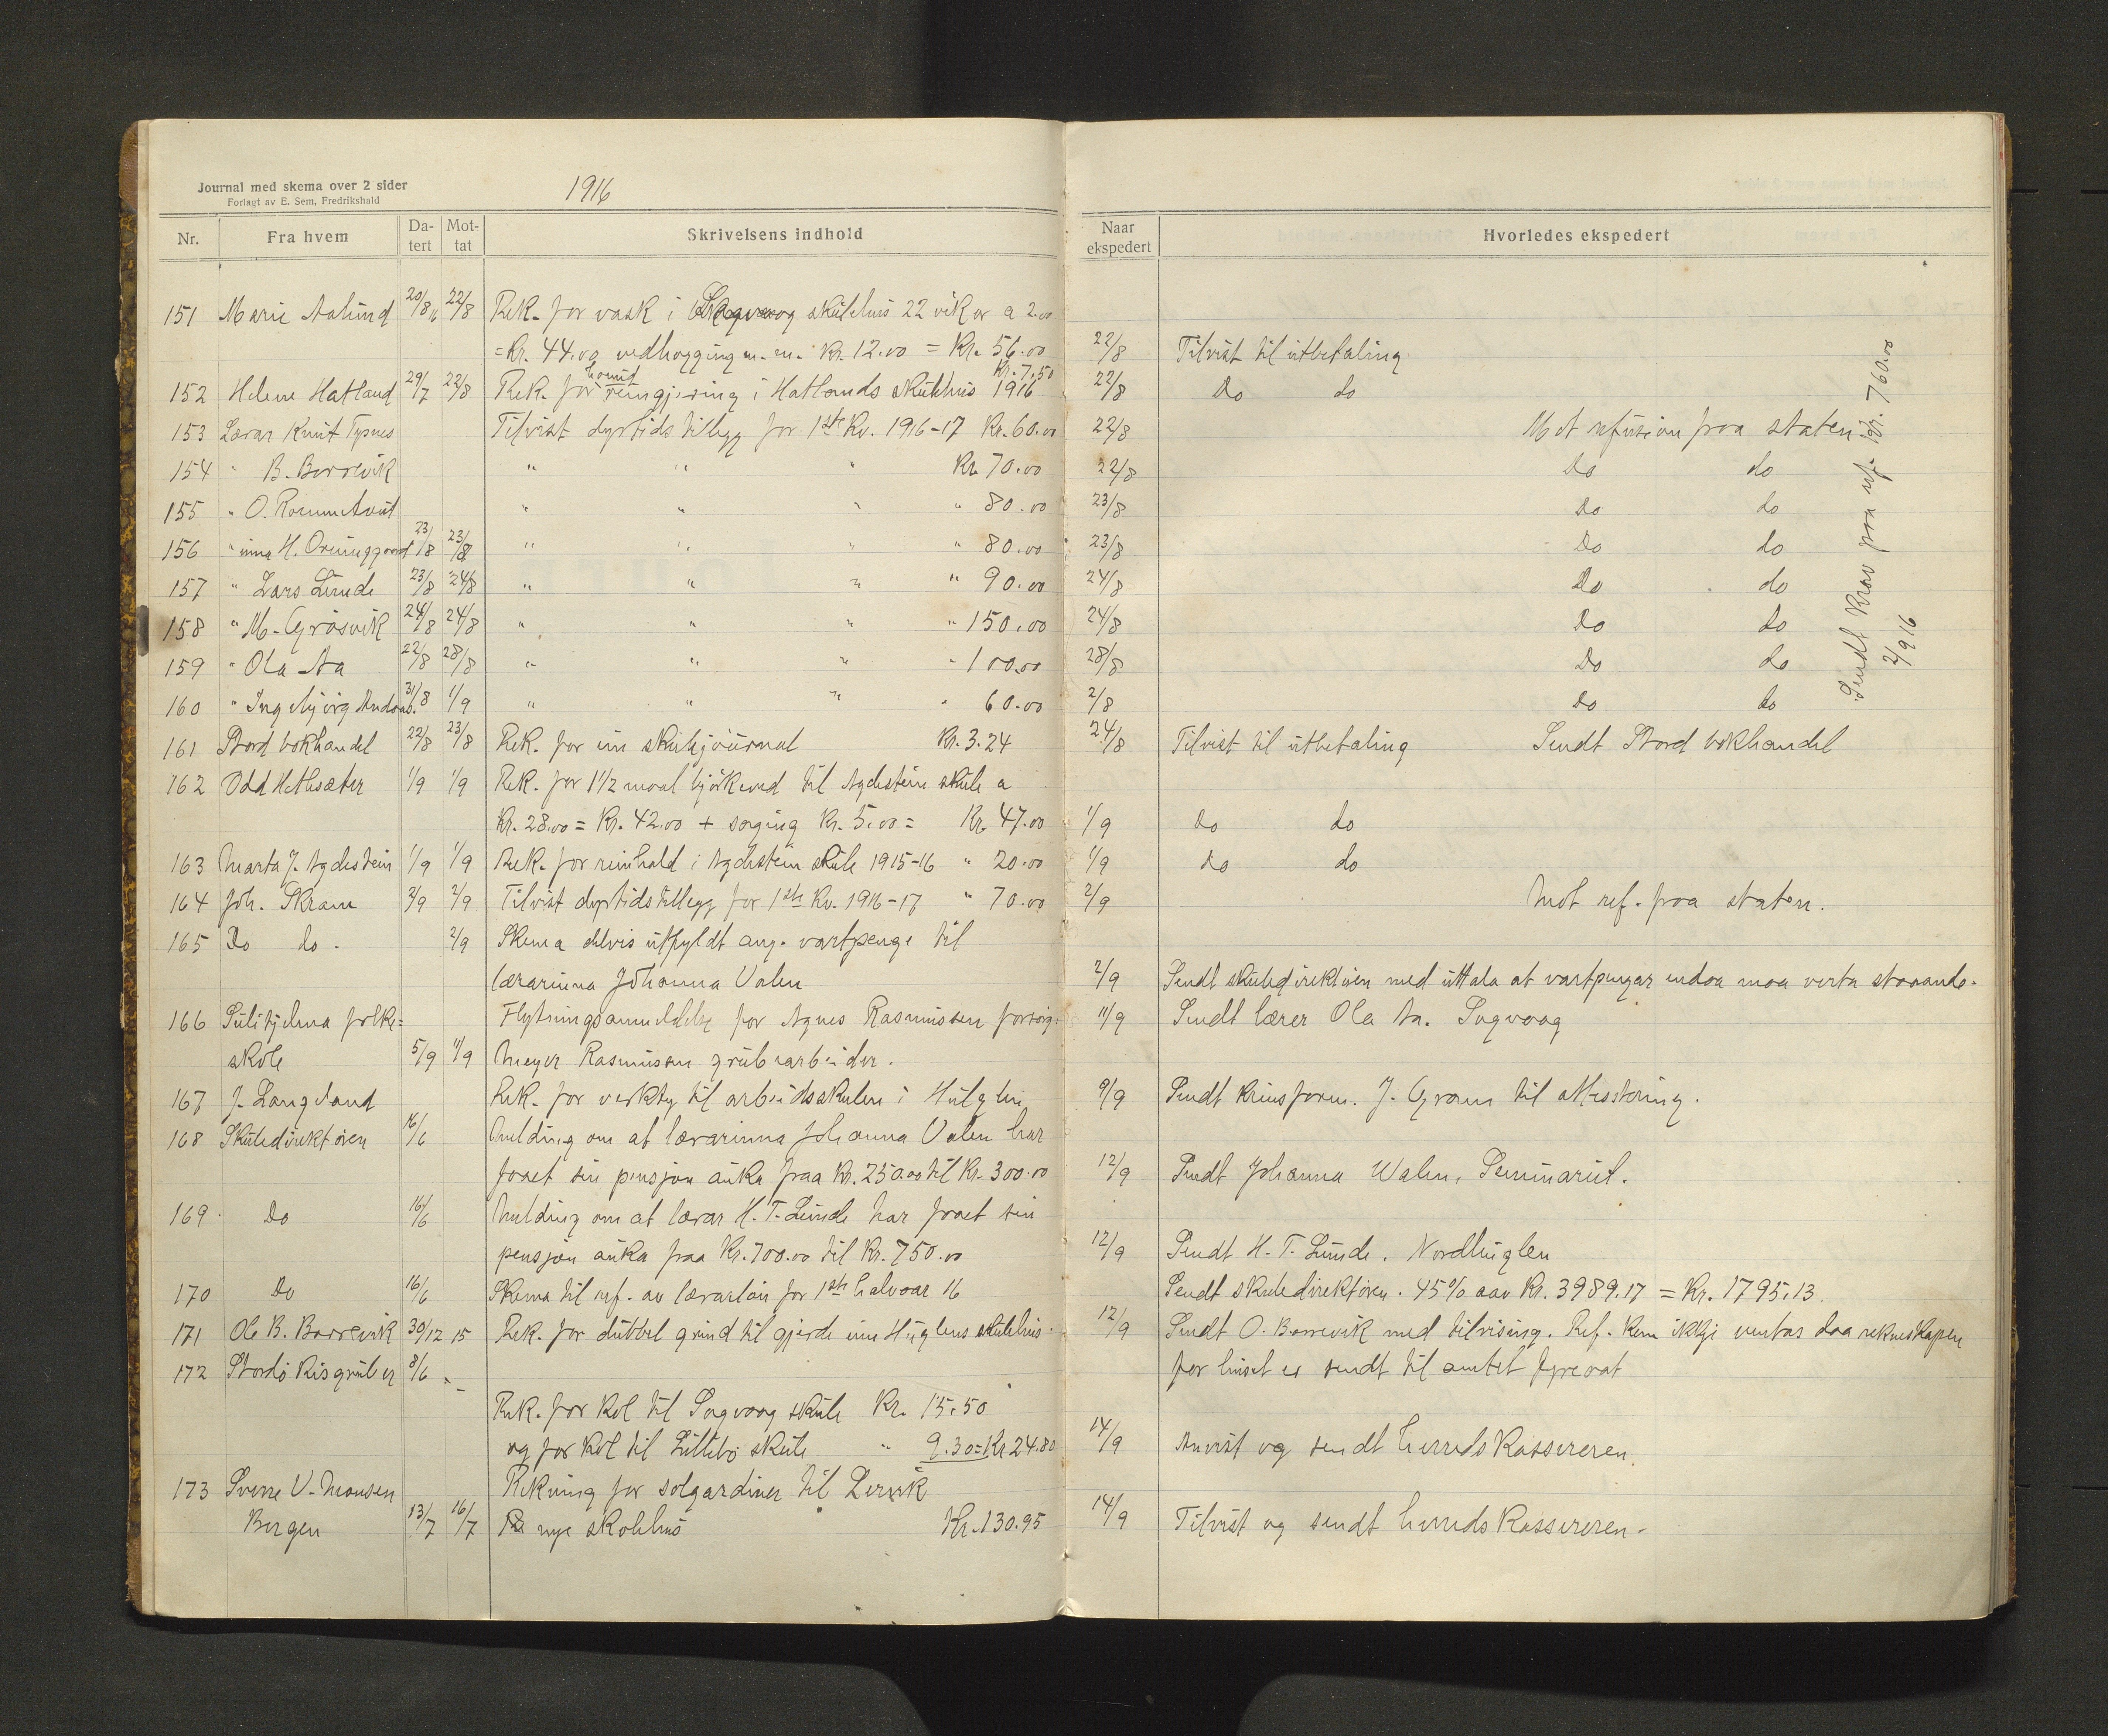 Journal med skema over 2 sider
Forlagt av E. Sem, Fredrikshald
1916
Nr. Fra hvem Datert Mottat Skrivelsens indhold Naar ekspedert Hvorledes ekspedert
151 Marie Aalund 20/8 16 22/8 Rek. for vask i Sagvaag skulehus 22 vikor a 2.00
= Kr. 44.00 vedhogging m. m. Kr. 12.00 = Kr. 56.00 22/8 Tilvist til utbetaling
152 Helene Hatland 29/7 22/8 Rek. for reingjering i Hatlands skulehus 1916 Kr. 7.50 22/8 Do do
153 Lærar Knut Tysnes Tilvist dyrtidstillegg for 1ste Kv. 1916-17 Kr. 60.00 22/8 Mot refusion fraa staten
154 " B. Borrevik " " " Kr. 70.00 22/8 Do do
155 " O. Rommetveit " " " " 80.00 23/8 Do do
156 " inna H. 23/8 23/8 " " " " 80.00 23/8 Do do
157 " Lars Lunde 23/8 24/8 " " " " 90.00 24/8 Do do
158 " M. Gråsvik 24/8 24/8 " " " " 150.00 24/8 Do do
159 " Ola Aa 22/8 28/8 " " " " 100.00 28/8 Do do
160 " Ingebjörg 31/8 1/9 " " " " 60.00 2/8 Do do
Sendt Krav paa ref. Kr. 760.00
2/9 16
161 Stord bokhandel 22/8 23/8 Rek. for ein skulejournal Kr. 3.24 24/8 Tilvist til utbetaling Sendt Stord bokhandel
162 Odd Hetlesæter 1/9 1/9 Rek. for 1 1/2 maal björkeved til Agdestein skule a
Kr. 28.00 = Kr. 42.00 + saging Kr. 5.00 = Kr. 47.00 1/9 Do do
163 Marta J. Agdestein 1/9 1/9 Rek. for reinhald i Agdestein skule 1915-16 " 20.00 1/9 Do do
164 Joh. Skram 2/9 2/9 Tilvist dyrtidstillegg for 1ste Kv. 1916-17 " 70.00 2/9 Mot ref. fraa staten.
165 Do do. 2/9 Skema delvis utfyldt ang. vartpenge til
lærarinna Johanna Valen 2/9 Sendt skuledirektören med uttala at vartpengar endaa maa verta staaande.
166 Sulitjelma folke=
skole 5/9 11/9 Flytningsanmeldelse for Agnes Rasmussen forsörg. 11/9 Sendt lærer Ola Aa. Sagvaag
Meyer Rasmussen grubearbeider.
167 J. Langeland Rek. for verkty til arbeidsskulen i Huglen 9/9 Sendt krinsform. J. Gram til attestering.
168 Skuledirektören 16/6 Melding om at lærarinna Johanna Valen har
faaet sin pensjon auka fraa Kr. 250.00 til Kr. 300.00 12/9 Sendt Johanna Walen, Seminariet.
169 Do 16/6 Melding om at lærar H. T. Lunde har faaet sin
pensjon auka fraa Kr. 700.00 til Kr. 750.00 12/9 Sendt H. T. Lunde. Nordhuglen
170 Do 16/6 Skema til ref. av lærarlön for 1ste halvaar 16 Sendt skuledirektören. 45% aav Kr. 3989.17 = Kr. 1795.13.
171 Ole B. Borrevik 30/12 15 Rek. for dubbel grind til gjerde um Huglens skulehus. 12/9 Sendt O. Borrevik med tilvising. Ref. kann ikkje ventas daa rekneskapen
for huset er sendt til amtet fyreaat
172 Stordö Kisgruber 8/6 "
Rek. for kol til Sagvaag skule Kr. 15.50
og for kol til Littlebö skule " 9.30 = Kr. 24.80 14/9 Anvist og sendt herredskassereren.
173 Sverre V. Monsen
Bergen 13/7 16/7 Rekning for solgardiner til Lervik
nye skolehus Kr. 130.95 14/9 Tilvist og sendt herredskassereren.